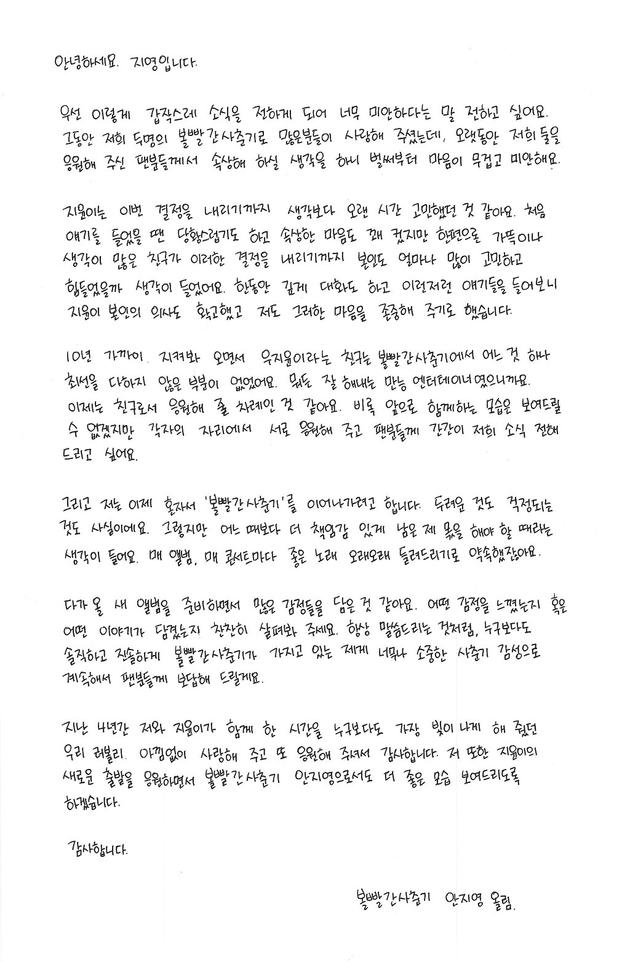 안녕하세요. 지영입니다.
우선 이렇게 갑작스레 소식을 전하게 되어 너무 미안하다는 말 전하고 싶어요.
그동안 저희 두명의 볼빨간사춘기로 많은분들이 사랑해 주셨는데, 오랫동안 저희 둘을
응원해 주신 팬분들께서 속상해 하실 생각을 하니 벌써부터 마음이 무겁고 미안해요.
지윤이는 이번 결정을 내리기까지 생각보다 오랜 시간 고민했던 것 같아요. 처음
얘기를 들었을 땐 당황스럽기도 하고 속상한 마음도 꽤 컸지만 한편으로 가뜩이나
생각이 많은 친구가 이러한 결정을 내리기까지 본인도 얼마나 많이 고민하고
힘들었을까 생각이 들었어요. 한동안 깊게 대화도 하고 이런저런 얘기들을 들어보니
지윤이 본인의 의사도 확고했고 저도 그러한 마음을 존중해 주기로 했습니다.
10년 가까이 지켜봐 오면서 우지윤이라는 친구는 볼빨간사춘기에서 어느 것 하나
최선을 다하지 않은 부분이 없었어요. 뭐든 잘 해내는 만능 엔터테이너였으니까요.
이제는 친구로서 응원해 줄 차례인 것 같아요. 비록 앞으로 함께하는 모습은 보여드릴
수 없겠지만 각자의 자리에서 서로 응원해 주고 팬분들께 간간이 저희 소식 전해
드리고 싶어요.
그리고 저는 이제 혼자서 '볼빨간사춘기'를 이어나가려고 합니다. 두려운 것도 걱정되는
것도 사실이에요. 그렇지만 어느 때보다 더 책임감 있게 남은 제 몫을 해야 할 때라는
생각이 들어요. 매 앨범, 매 콘서트마다 좋은 노래 오래오래 들려드리기로 약속했잖아요.
다가 올 새 앨범을 준비하면서 많은 감정들을 담은 것 같아요. 어떤 감정을 느꼈는지 혹은
어떤 이야기가 담겼는지 찬찬히 살펴봐 주세요. 항상 말씀드리는 것처럼, 누구보다도
솔직하고 진솔하게 볼빨간사춘기가 가지고 있는 제게 너무나 소중한 사춘기 감성으로
계속해서 팬분들께 보답해 드릴게요.
지난 4년간 저와 지윤이가 함께 한 시간을 누구보다도 가장 빛이 나게 해 줬던
우리 러볼리. 아낌없이 사랑해 주고 또 응원해 주셔서 감사합니다. 저 또한 지윤이의
새로운 출발을 응원하면서 볼빨간사춘기 안지영으로서도 더 좋은 모습 보여드리도록
하겠습니다.
감사합니다.
볼빨간사춘기 안지영 올림.